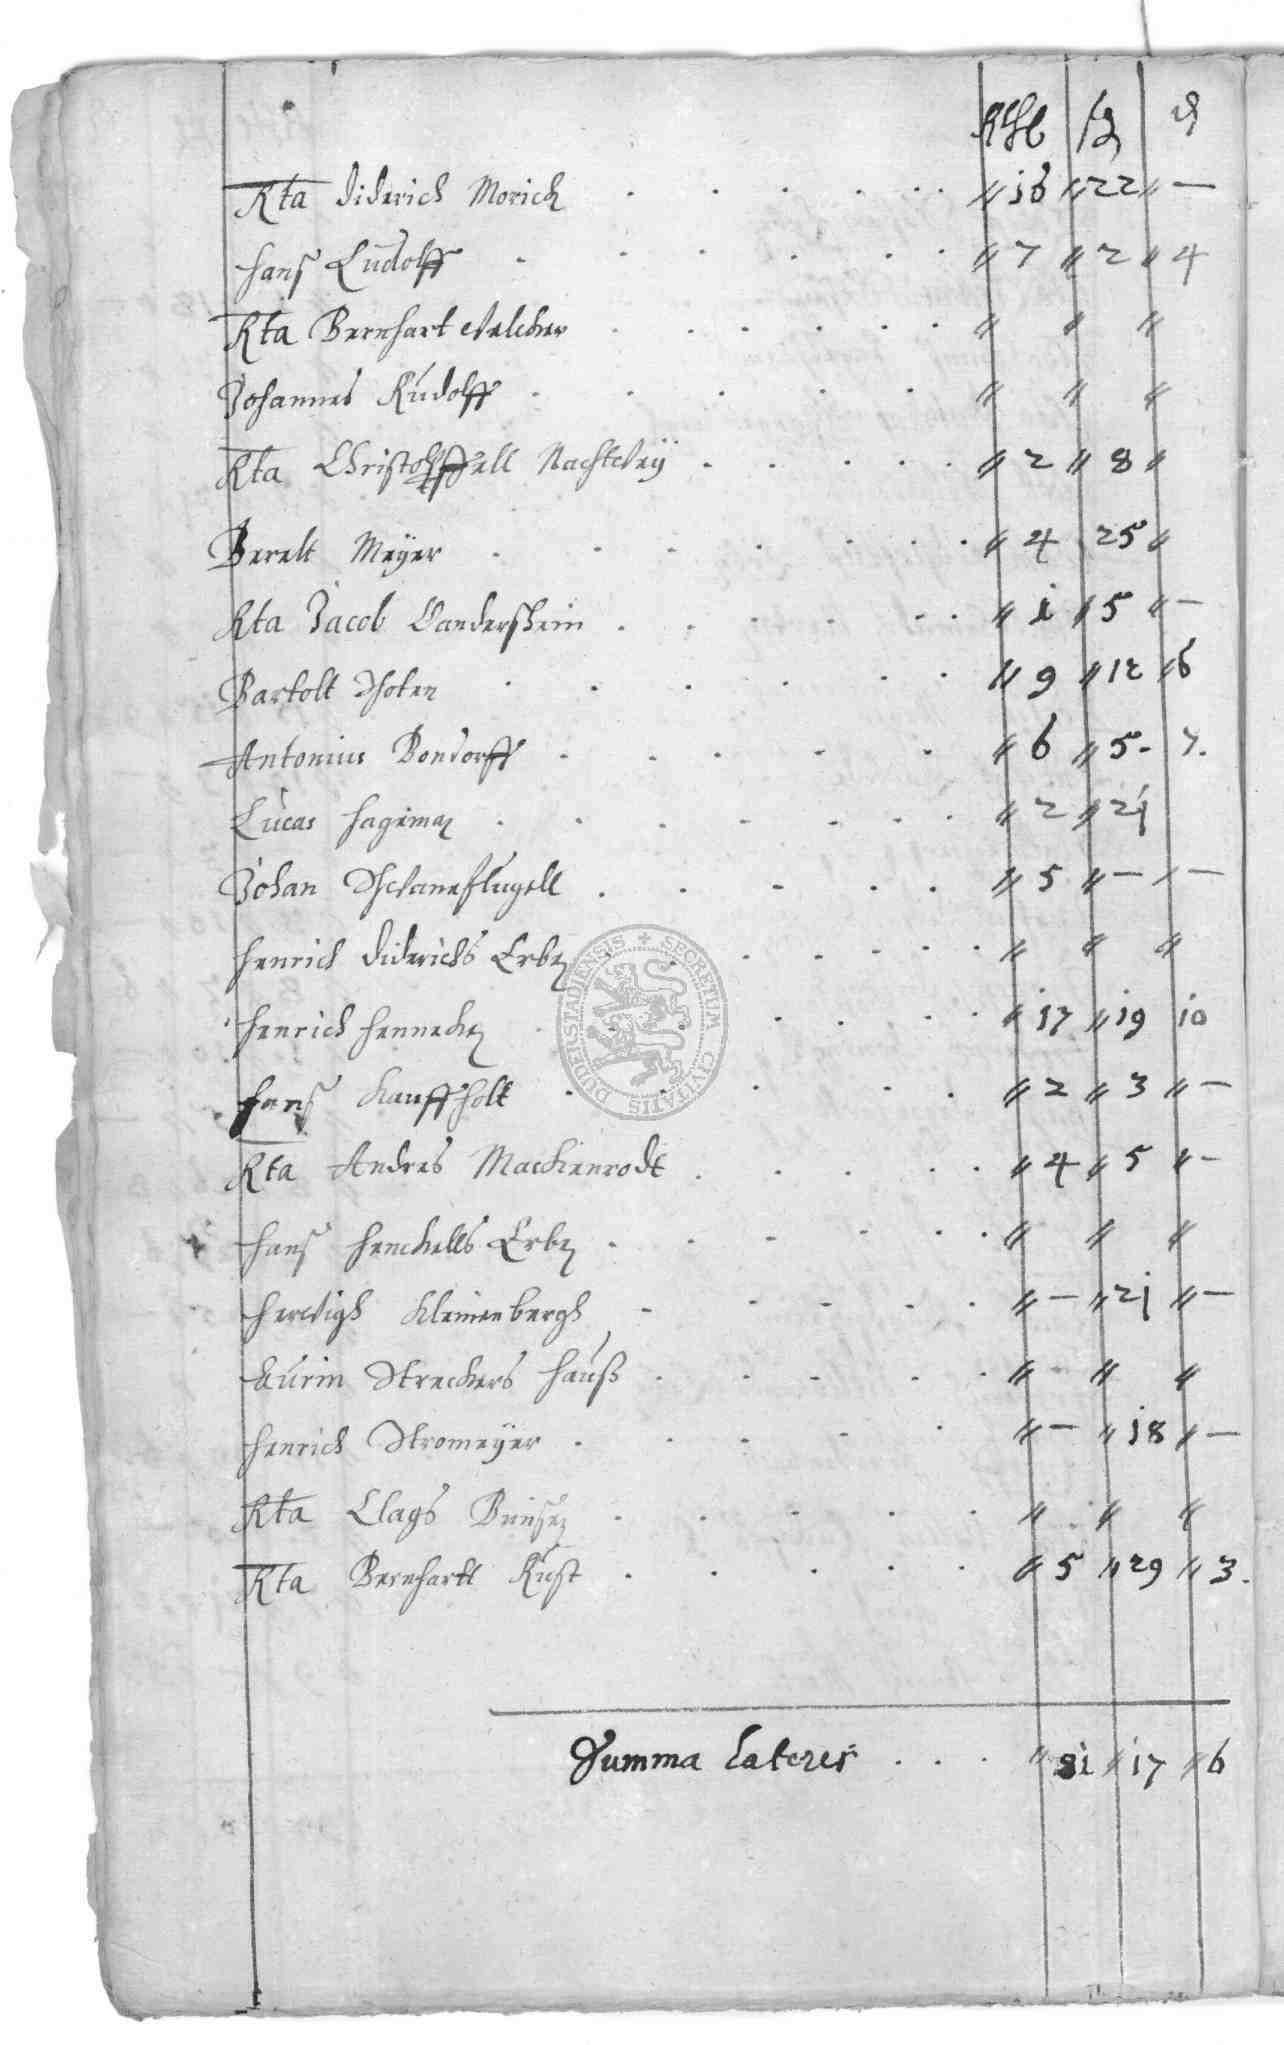 Rthl ßg ₰
Rta Diderich Morich . . . . . . " 16 " 22 " —
Hans Ludolff . . . . . . " 7 " 2 " 4
Rta Bernhart Welcker . . . . . . " " "
Johannes Rudolff . . . . . . " " "
Rta Christoffell Nachtwey . . . . . " 2 " 8 "
Berelt Meÿer . . . . . . . " 4 25 "
Rta Jacob Vandershein . . . . . . " 1 " 5 " —
Bartolt Schoten . . . . . . " 9 " 12 " 6
Antonius Bondorff . . . . . . " 6 " 5 - 7.
Lucas Hageman . . . . . . . " 2 " 21
Johan Schwaneflugell . . . . . " 5 " — " —
Henrich Diderichs Erben . . . . . . " " "
Henrich Hennecken . . . . . . " 17 " 19 10
Hans Kauffholt . . . . . " 2 " 3 " —
Rta Andres Mackenrodt . . . . . " 4 " 5 " -
Hans Henckells Erben . . . . . . " " "
Herwigh Kleinenbergh . . . . . " — " 21 " —
Curin Streckers Hauß . . . . . " " "
Henrich Stromeÿer . . . . . " — " 18 " —
Rta Clags Bunsen . . . . . " " "
Rta Bernhartt Rust . . . . . " 5 " 29 " 3.
Summa Lateris . . . " 81 " 17 " 6
SECRETUM CIVITATIS DUDERSTADIENSIS